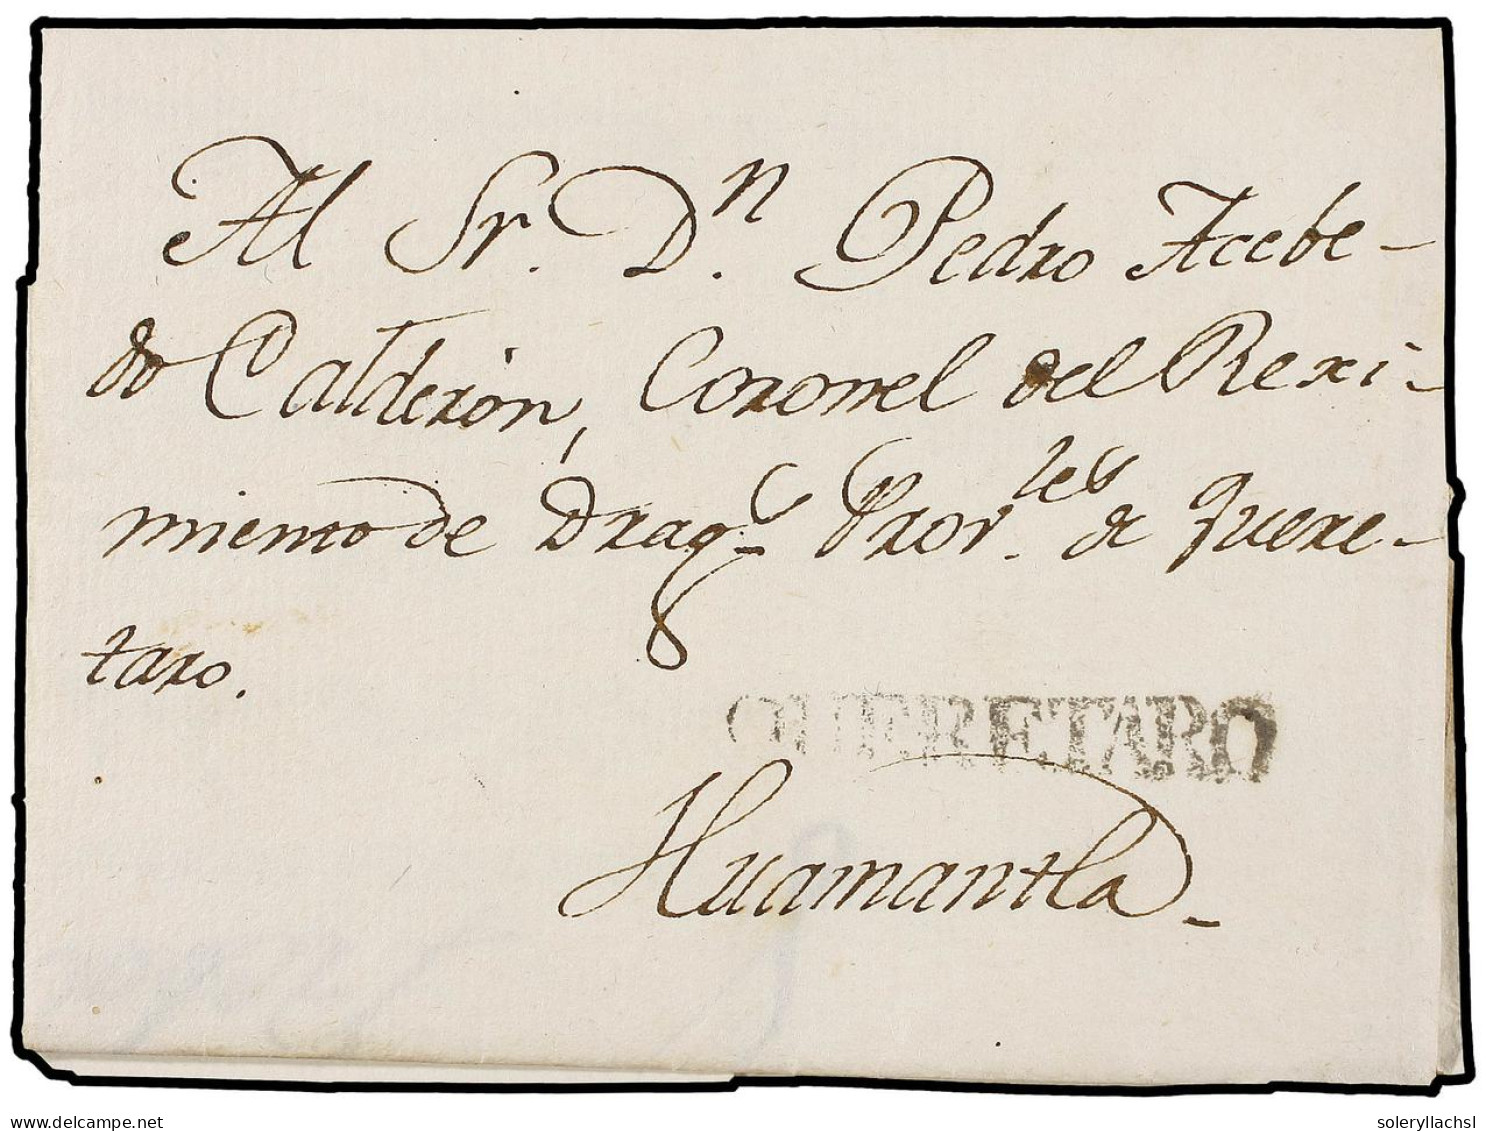 Al Sr. Dn. Pedro Acebe-
do Calderón, Coronel del Rexi-
miento de Drags. Provles. de Quere-
taro.
QUERETARO
Huamantla-
delcampe.net
soleryllachsl